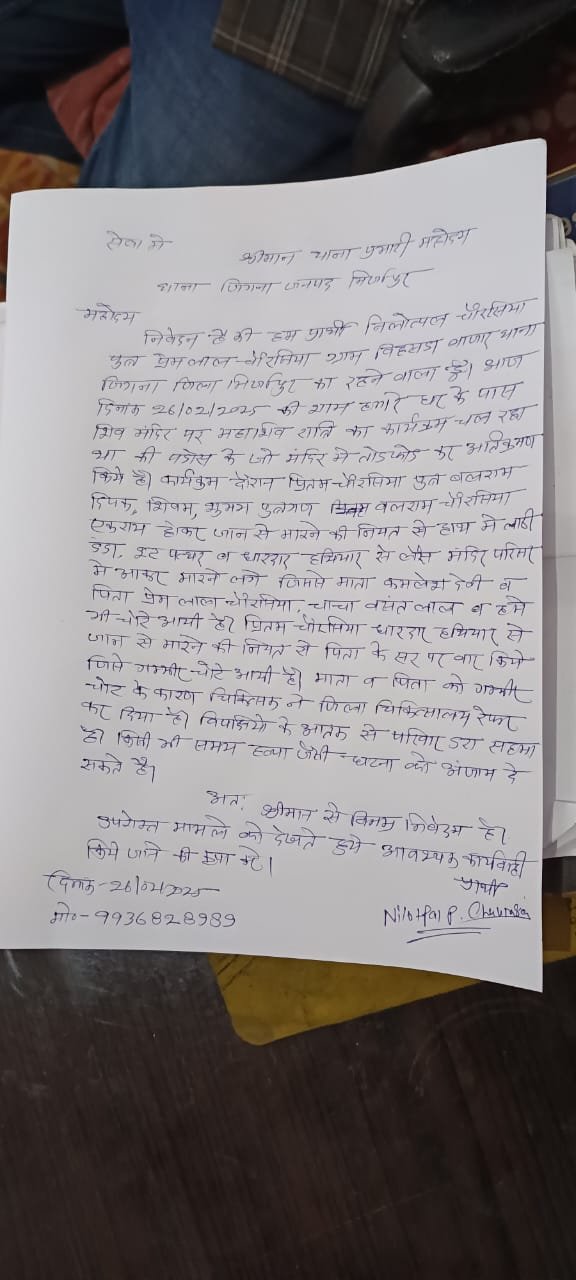 सेवा मे
श्रीमान थाना प्रभारी महोदय
थाना जिगना जनपद मिर्जापुर
महोदय
निवेदन है की हम प्रार्थी निलोत्पल चौरसिया
पुत्र प्रेमलाल चौरसिया ग्राम विहसडा बाजार थाना
जिगना जिला मिर्जापुर का रहने वाला हूँ। आज
दिनांक 26/02/2025 की शाम हमारे घर के पास
शिव मंदिर पर महाशिव रात्रि का कार्यक्रम चल रहा
था की पड़ोस के जो मंदिर मे तोडफोड का अतिक्रमण
किये है। कार्यक्रम दौरान प्रितम चौरसिया पुत्र बलराम
दिपक, शिवम, शुभम पुत्रगण बलराम चौरसिया
एकराय होकर जान से मारने की नियत से हाथ मे लाठी
डंडा, इट पत्थर व धारदार हथियार से लैस मंदिर परिसर
मे आकर मारने लगे जिससे माता कमलेश देवी व
पिता प्रेम लाल चौरसिया, चाचा वसंत लाल व हमे
भी चोटे आयी है। प्रितम चौरसिया धारदार हथियार से
जान से मारने की नियत से पिता के सर पर वार किये
जिसे गम्भीर चोटे आयी है। माता व पिता को गम्भीर
चोट के कारण चिकित्सक ने जिला चिकित्सालय रेफर
कर दिया है। विपक्षियो के आतंक से परिवार डरा सहमा
है। किसी भी समय हत्या जैसी घटना को अंजाम दे
सकते है।
अतः श्रीमान से विनम्र निवेदन है।
उपरोक्त मामले को देखते हुये आवश्यक कार्यवाही
किये जाने की कृपा करे।
दिनांक-26/02/2025
प्रार्थी
मो०-9936828989
Nilotpal P. Chaurasia